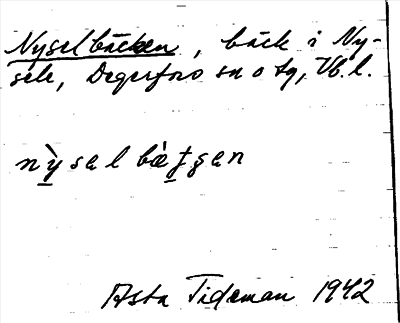 Nyselbäcken, bäck i Ny-
sele, Degerfors sn o tg, Vb. l.
Asta Tideman 1942